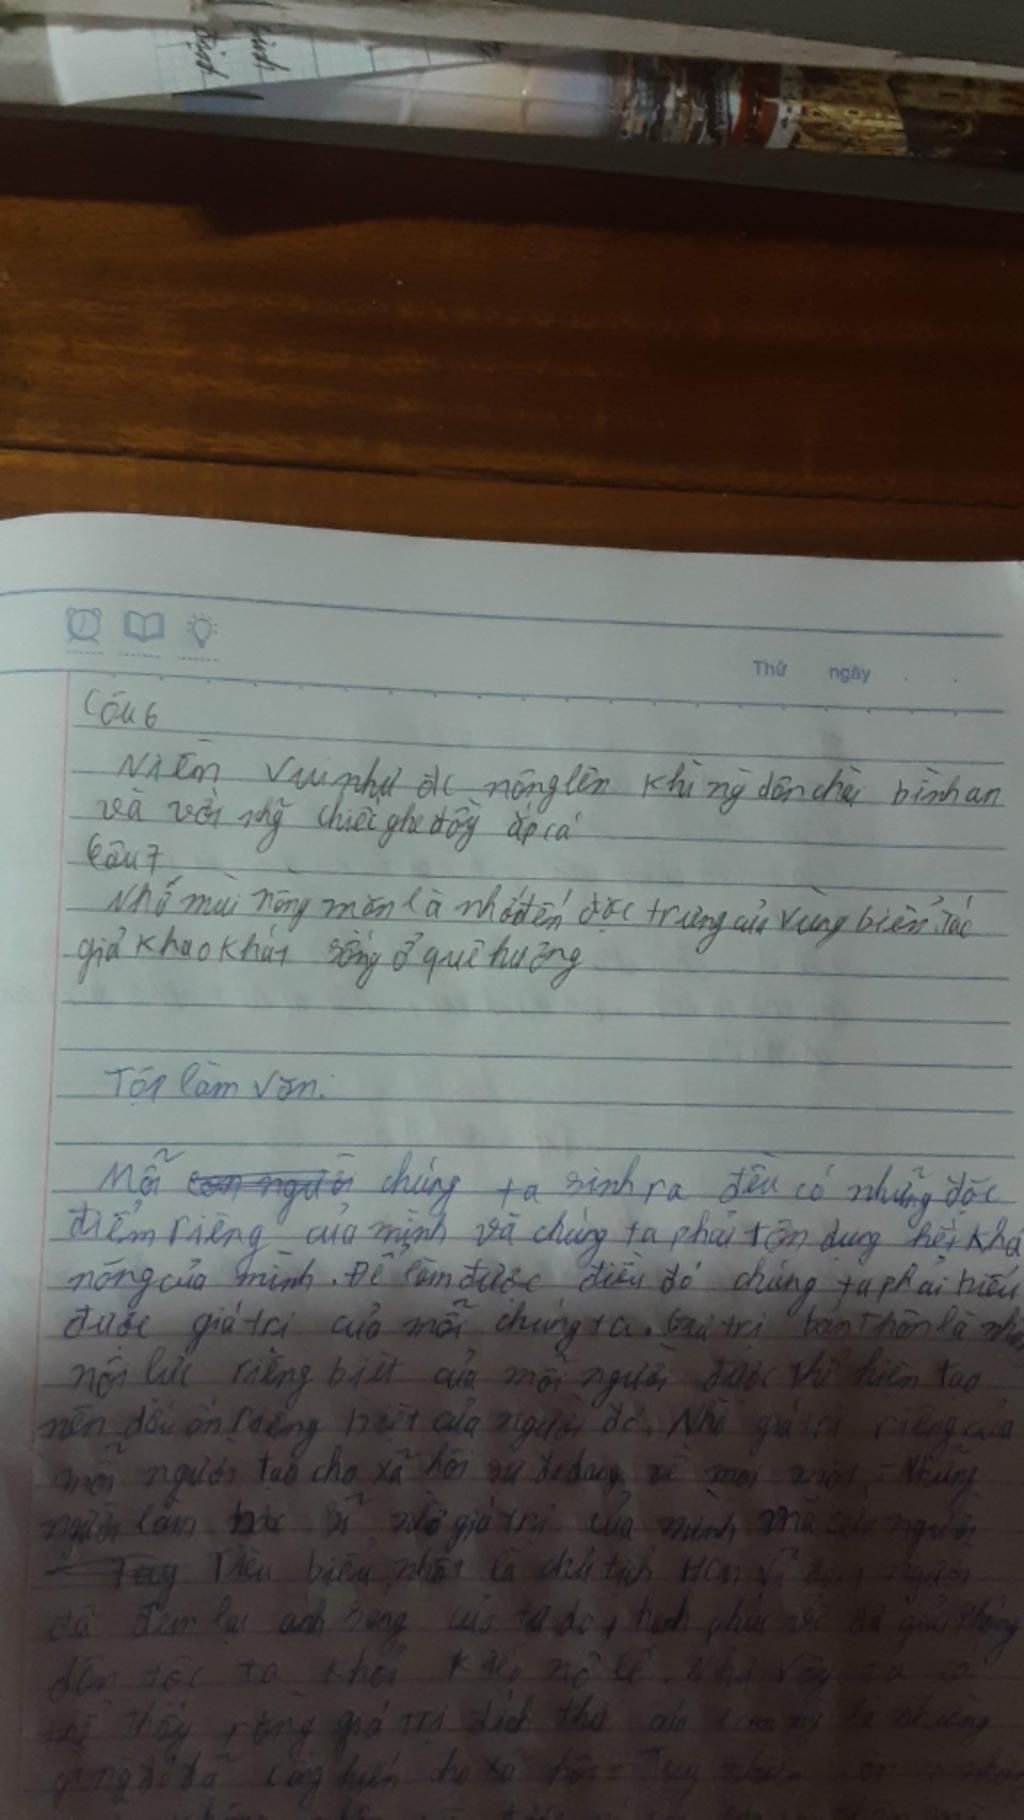 định
Thứ ngày
Câu 6
Niềm vui như đc nâng lên khi ng dân chài bình an
và với nhg chiếc ghe đầy ắp cá
Câu 7
Nhớ mùi nồng mặn là nhớ đến đặc trưng của vùng biển. Tác
giả khao khát sống ở quê hương
Tập làm văn:
Mỗi chúng ta sinh ra đều có những đặc
điểm riêng của mình và chúng ta phải tận dụng hết khả
năng của mình. Để làm được điều đó chúng ta phải hiểu
được giá trị của mỗi chúng ta. Giá trị bản thân là
nội lực riêng biệt của mỗi người được thể hiện tạo
nên dấu ấn riêng biệt của người đó. Nhờ giá trị riêng của
mỗi người tạo cho xã hội sự đa dạng về mọi mặt. Những
người làm bác sĩ nhờ giá trị của mình mà cứu người
Tiêu biểu nhất là chủ tịch HCM vĩ đại, người
đã đem lại ánh sáng của tự do, hạnh phúc và đã giải phóng
dân tộc ta khỏi kiếp nô lệ. Như vậy ta có
thể thấy rằng giá trị đích thực của con ng là những
gì ng đó đã cống hiến cho xã hội. Tuy nhiên